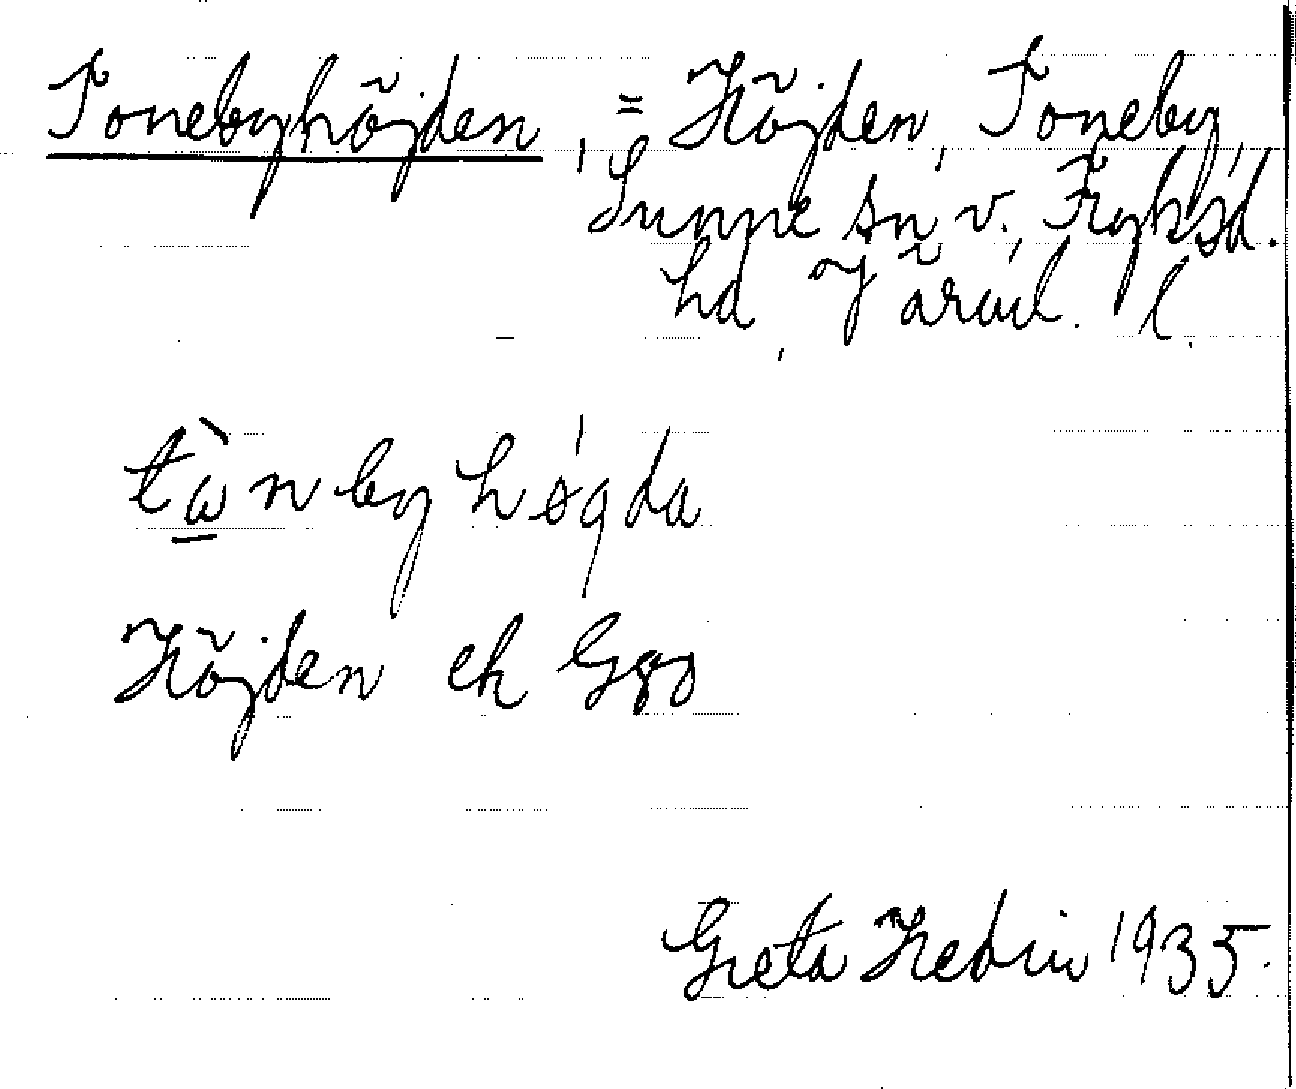 Tonebyhöjden, = Höjden, Toneby,
Sunne sn, v. Fryksd.
hd, Värml. l.
tὼnbyhøgda
Höjden ek Ggo
Greta Hedin 1935.